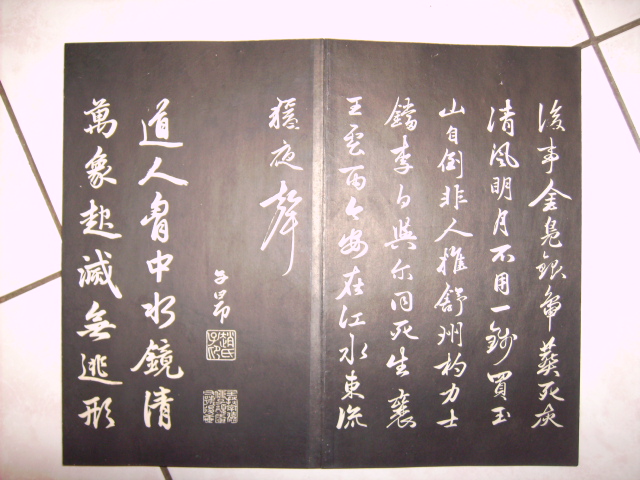 後事金鳧銀鴨葬死灰
清風明月不用一錢買玉
山自倒非人推舒州杓力士
鐺李白與尔同死生襄
王雲雨今安在江水東流
猨夜聲
子昂
趙氏子昂
道人胷中水鏡清
萬象起滅無逃形